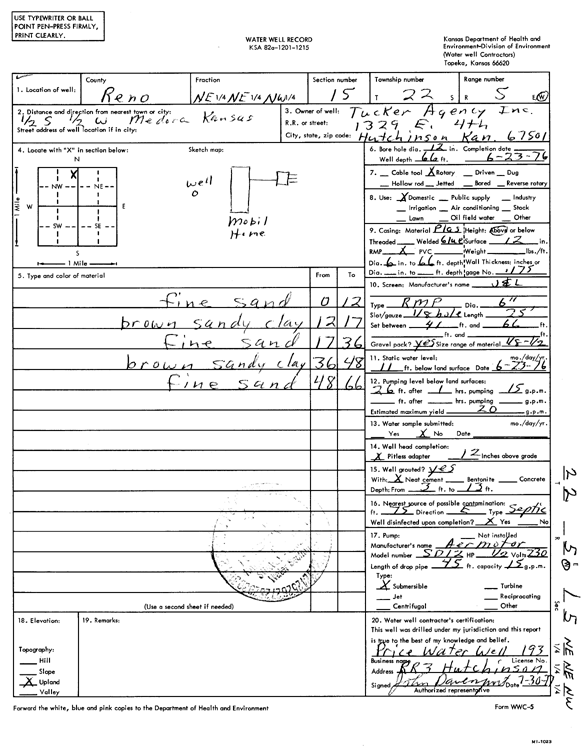 USE TYPEWRITER OR BALL
POINT PEN-PRESS FIRMLY,
PRINT CLEARLY.
WATER WELL RECORD
KSA 82a-1201-1215
Kansas Department of Health and
Environment-Division of Environment
(Water well Contractors)
Topeka, Kansas 66620
1. Location of well:
County
Reno
Fraction
NE 1/4 NE 1/4 NW 1/4
Section number
15
Township number
T 22 S
Range number
R 5 E/W
2. Distance and direction from nearest town or city:
1/2 S 1/2 W Medora Kansas
Street address of well location if in city:
3. Owner of well: Tucker Agency Inc.
R.R. or street: 1329 E. 4th
City, state, zip code: Hutchinson Kan. 67501
4. Locate with "X" in section below:
Sketch map:
N
X
NW NE
W E
SW SE
S
1 Mile
1 Mile
well
o
Mobil
Home
6. Bore hole dia. 12 in. Completion date
Well depth 66 ft. 6-23-76
7. Cable tool X Rotary Driven Dug
Hollow rod Jetted Bored Reverse rotary
8. Use: X Domestic Public supply Industry
Irrigation Air conditioning Stock
Lawn Oil field water Other
9. Casing: Material Plas Height: Above or below
Threaded Welded Glue Surface 12 in.
RMP X PVC Weight lbs./ft.
Dia. 6 in. to 66 ft. depth Wall Thickness: inches or
Dia. in. to ft. depth gage No. .175
5. Type and color of material From To
fine sand 0 12
brown sandy clay 12 17
fine sand 17 36
brown sandy clay 36 48
fine sand 48 66
10. Screen: Manufacturer's name
Type RMP Dia. 6"
Slot/gauze 1/8 hole Length 25'
Set between 41 ft. and 66 ft.
ft. and ft.
Gravel pack? yes Size range of material 1/8-1/2
11. Static water level: mo./day/yr.
11 ft. below land surface Date 6-23-76
12. Pumping level below land surfaces:
26 ft. after 1 hrs. pumping 15 g.p.m.
ft. after hrs. pumping g.p.m.
Estimated maximum yield 20 g.p.m.
13. Water sample submitted: mo./day/yr.
Yes X No Date
14. Well head completion:
X Pitless adapter 12 Inches above grade
15. Well grouted? yes
With: X Neat cement Bentonite Concrete
Depth: From 3 ft. to 13 ft.
16. Nearest source of possible contamination:
ft. 75 Direction E Type Septic
Well disinfected upon completion? X Yes No
17. Pump: Not installed
Manufacturer's name Aermotor
Model number SD12 HP 1/2 Volts 230
Length of drop pipe 45 ft. capacity 15 g.p.m.
Type:
X Submersible Turbine
Jet Reciprocating
Centrifugal Other
(Use a second sheet if needed)
18. Elevation:
19. Remarks:
Topography:
Hill
Slope
X Upland
Valley
20. Water well contractor's certification:
This well was drilled under my jurisdiction and this report
is true to the best of my knowledge and belief.
Price Water Well 193
Business name License No.
Address RR3 Hutchinson
Signed John Davenport Date 7-30-77
Authorized representative
Forward the white, blue and pink copies to the Department of Health and Environment
Form WWC-5
T 22
R 5 E W
Sec 15
1/4 1/4 1/4
NE NE NW